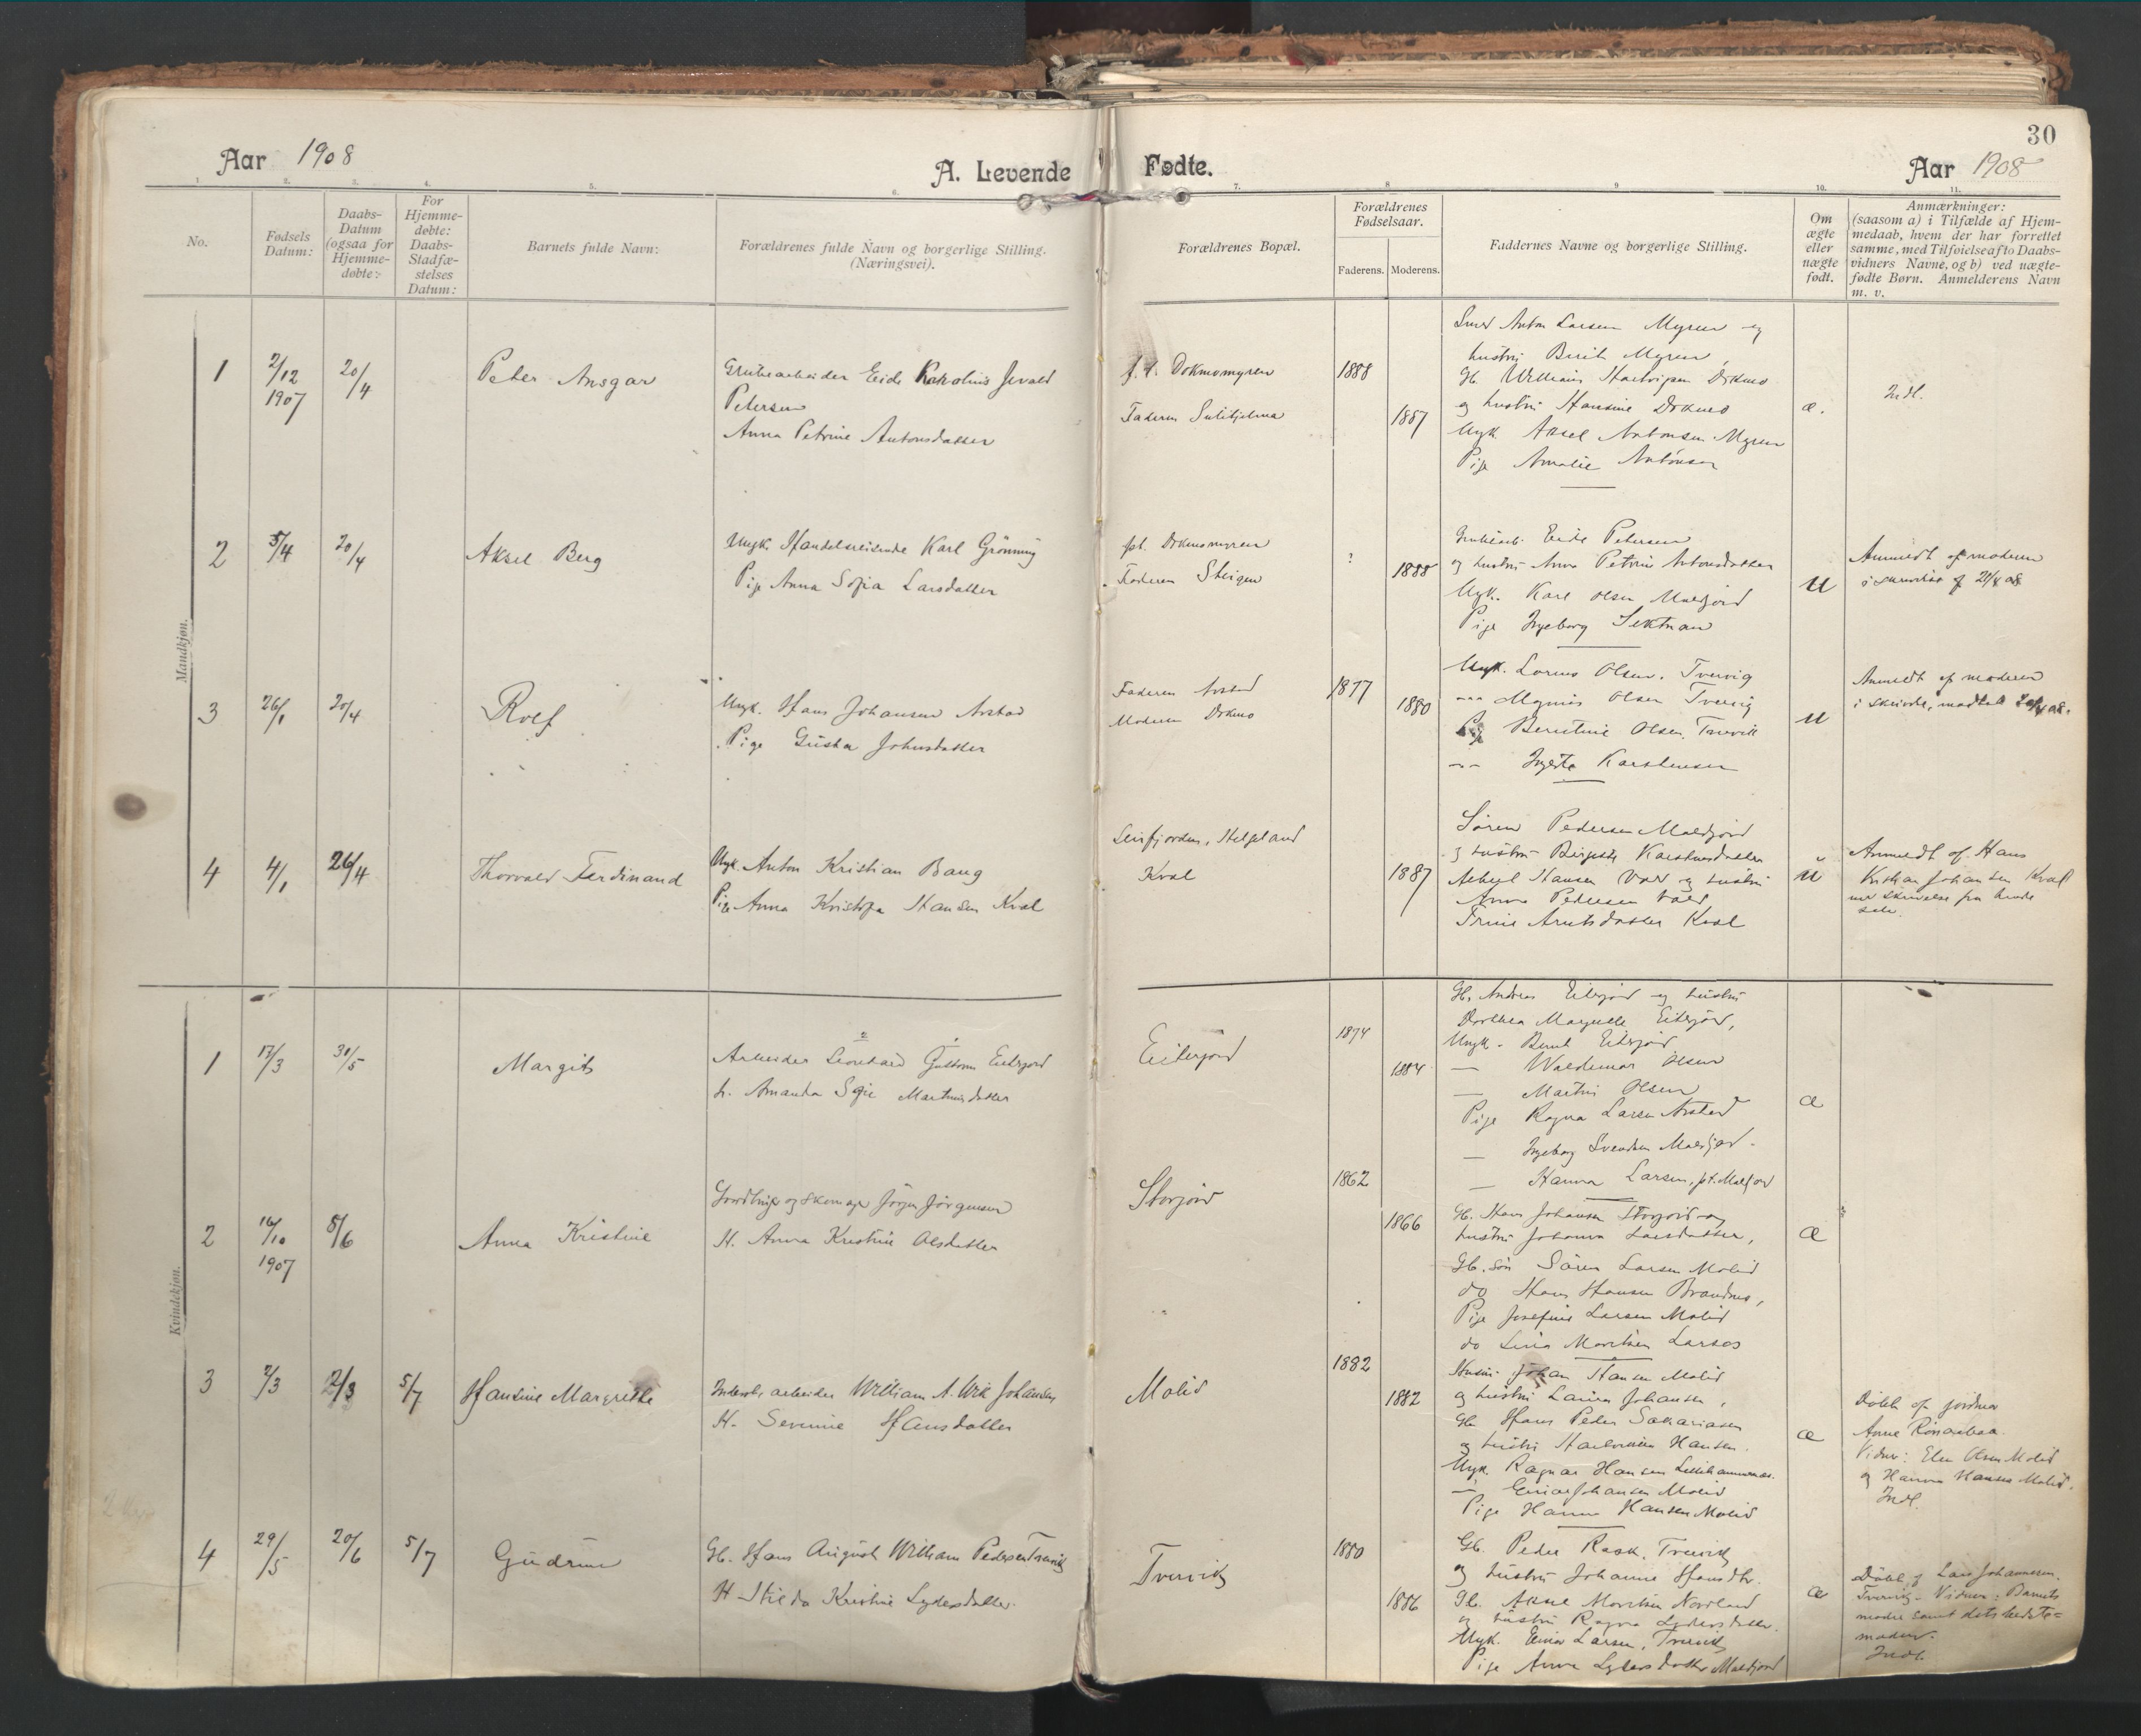 30
Aar 1908
A. Levende Fødte.
Aar 1908
1. 2. 3. 4. 5. 6. 7. 8 9 10. 11.
No.
Fødsels Datum:
Daabs-
Datum
(ogsaa for
Hjemme-
døbte:
For
Hjemme-
døbte:
Daabs-
Stadfæ-
stelses
Datum:
Barnets fulde Navn:
Forældrenes fulde Navn og borgerlige Stilling.
(Næringsvei).
Forældrenes Bopæl.
Forældrenes
Fødselsaar.
Faderens. Moderens.
Faddernes Navne og borgerlige Stilling.
Om
ægte
eller
uægte
født.
Anmærkninger:
(saasom a) i Tilfælde af Hjem-
medaab, hvem der har forrettet
samme, med Tilføielse af to Daabs-
vidners Navne, og b) ved uægte-
fødte Børn. Anmelderens Navn
m. v.
Mandkjøn.
1
2/12
1907
20/4
Peter Ansgar
Grubearbeider Eide Jevald
Petersen
Anna Petrine Antonsdatter
Dokmomyren
Faderen Sulitjelma
1888
1887
Smed Anton Larsen Myren og
hustru Berit Myren,
Gb. William Dokmo
og hustru Hansine Dokmo
Ungk. Aksel Antonsen Myren
Pige Amalie Antonsen
æ.
Indl.
2
5/4
20/4
Aksel Berg
Ungk. Handelsreisende Karl Grönning
Pige Anna Sofia Larsdatter
pt. Dokmomyren
Faderen Steigen
?
1888
Grubearb. Eide Petersen
og hustru Anna Petrine Antonsdatter
Ungk. Karl Olsen Misfjord
Pige Ingeborg Sektnan
U
Anmeldt af moderen
i skrivelse af 21/4 08
3
26/1
20/4
Rolf
Ungk. Hans Johansen Arstad
Pige Gusta Johnsdatter
Faderen Arstad
Moderen Dokmo
1877
1880
Ungk. Lorens Olsen, Tvervig
--- Magnus Olsen Tvervig
Pige Berntine Olsen, Tvervik
--- Karstensen
U
Anmeldt af moderen
4
4/1
26/4
Thorvald Ferdinand
Ungk. Anton Kristian Bang
Pige Anna Kristofa Hansen Kval
Leirfjorden, Helgeland
Kval
1887
Sören Pedersen Maldfjord
og hustru Birgitte Karstensdatter
Hansen Vold og hustru
Anna Pedersen Vold
Trine Arntsdatter Kval
U
Anmeldt af Hans
Kristian Johansen Kval
med skrivelse fra hende
selv.
Kvindekjøn.
1
17/3
31/5
Margit
Arbeider Leonhard Eiterjord
h. Amanda Sofie Martinusdatter
Eiterjord
1874
1884
Gb. Andreas Eiterjord og hustru
Dorthea Margrete Eiterjord,
Ungk. Bernt Eiterjord
— Waldemar Olsen
— Martin Olsen
Pige Ragna Larsen Arstad
— Ingeborg Svendsen
— Hanna Larsen, pt.
æ
2
16/10
1907
8/6
Anna Kristine
Jordbruger og skomager Jörgen Jörgensen
H. Anna Kristine Olsdatter
Storjord
1862
1866
Gb. Hans Johansen Storjord og
hustru Johanna Larsdatter,
Gb. sön Sören Larsen Molid
do Hans Hansen Brandnes,
Pige Josefine Larsen Molid
do Lina Larsos
æ
3
2/3
12/3
5/7
Hansine Margrethe
arbeider William A. Wik Johansen
H. Severine Hansdatter
Molid
1882
1882
Johan Hansen Molid
og hustru Laura Johansen,
Gb Hans Peder Sakariasen
og hustru Hansen.
Ungk. Ragnar Hansen
— Einar Johansen Molid
Pige Hanna Hansen Molid
æ
Döbt af jordmor
Anne
Vidner: Elen Olsen Molid
og Hanna Hansen Molid.
Indl.
4
29/5
20/6
5/7
Gudrun
Gb. Hans August William Pedersen Tvervik
H Hilda Kristine Lydersdatter.
Tvervik
1880
1886
Gb. Peder Rask, Tvervik
og hustru Johanne Hansdtr.
Gb. Aksel Nordland
og hustru Ragna Lydersdatter.
Ungk. Einar Larsen, Tvervik
Pige Anna Lydersdatter
æ
Döbt af Lars Johannesen,
Tvervik. Vidner: Barnets
moder samt dets bedste=
moder.
Indl.